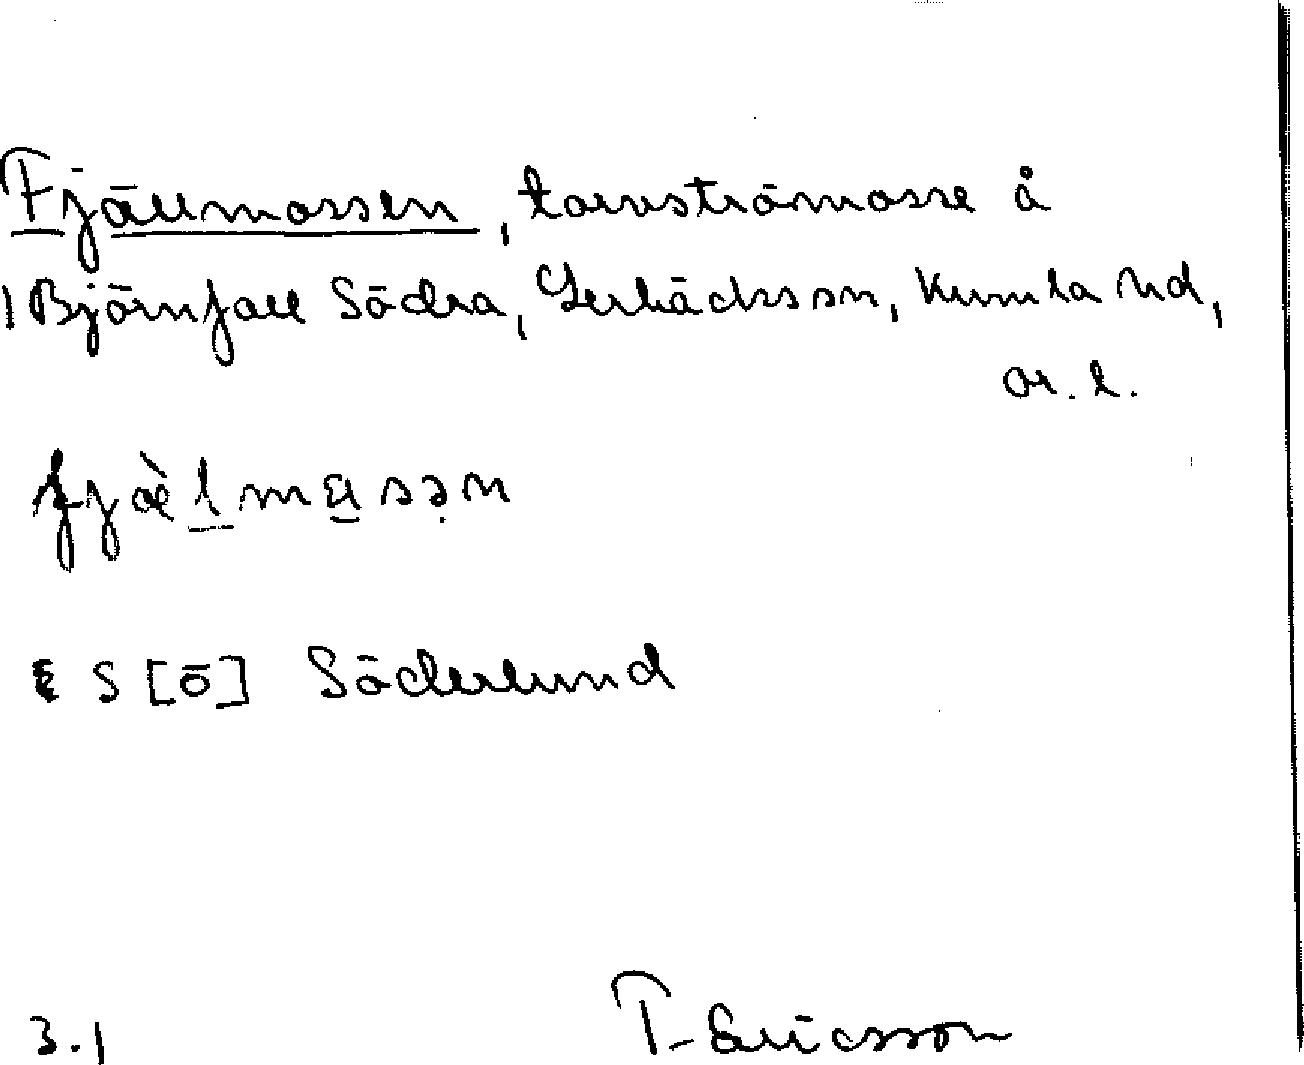 Fjällmossen, torvströmosse å
1 Björnfall Södra, Lerbäcks sn, Kumla hd,
Ör. l.
fjæ̀lmasən
S [ö] Söderlund
3.1 T. Ericsson